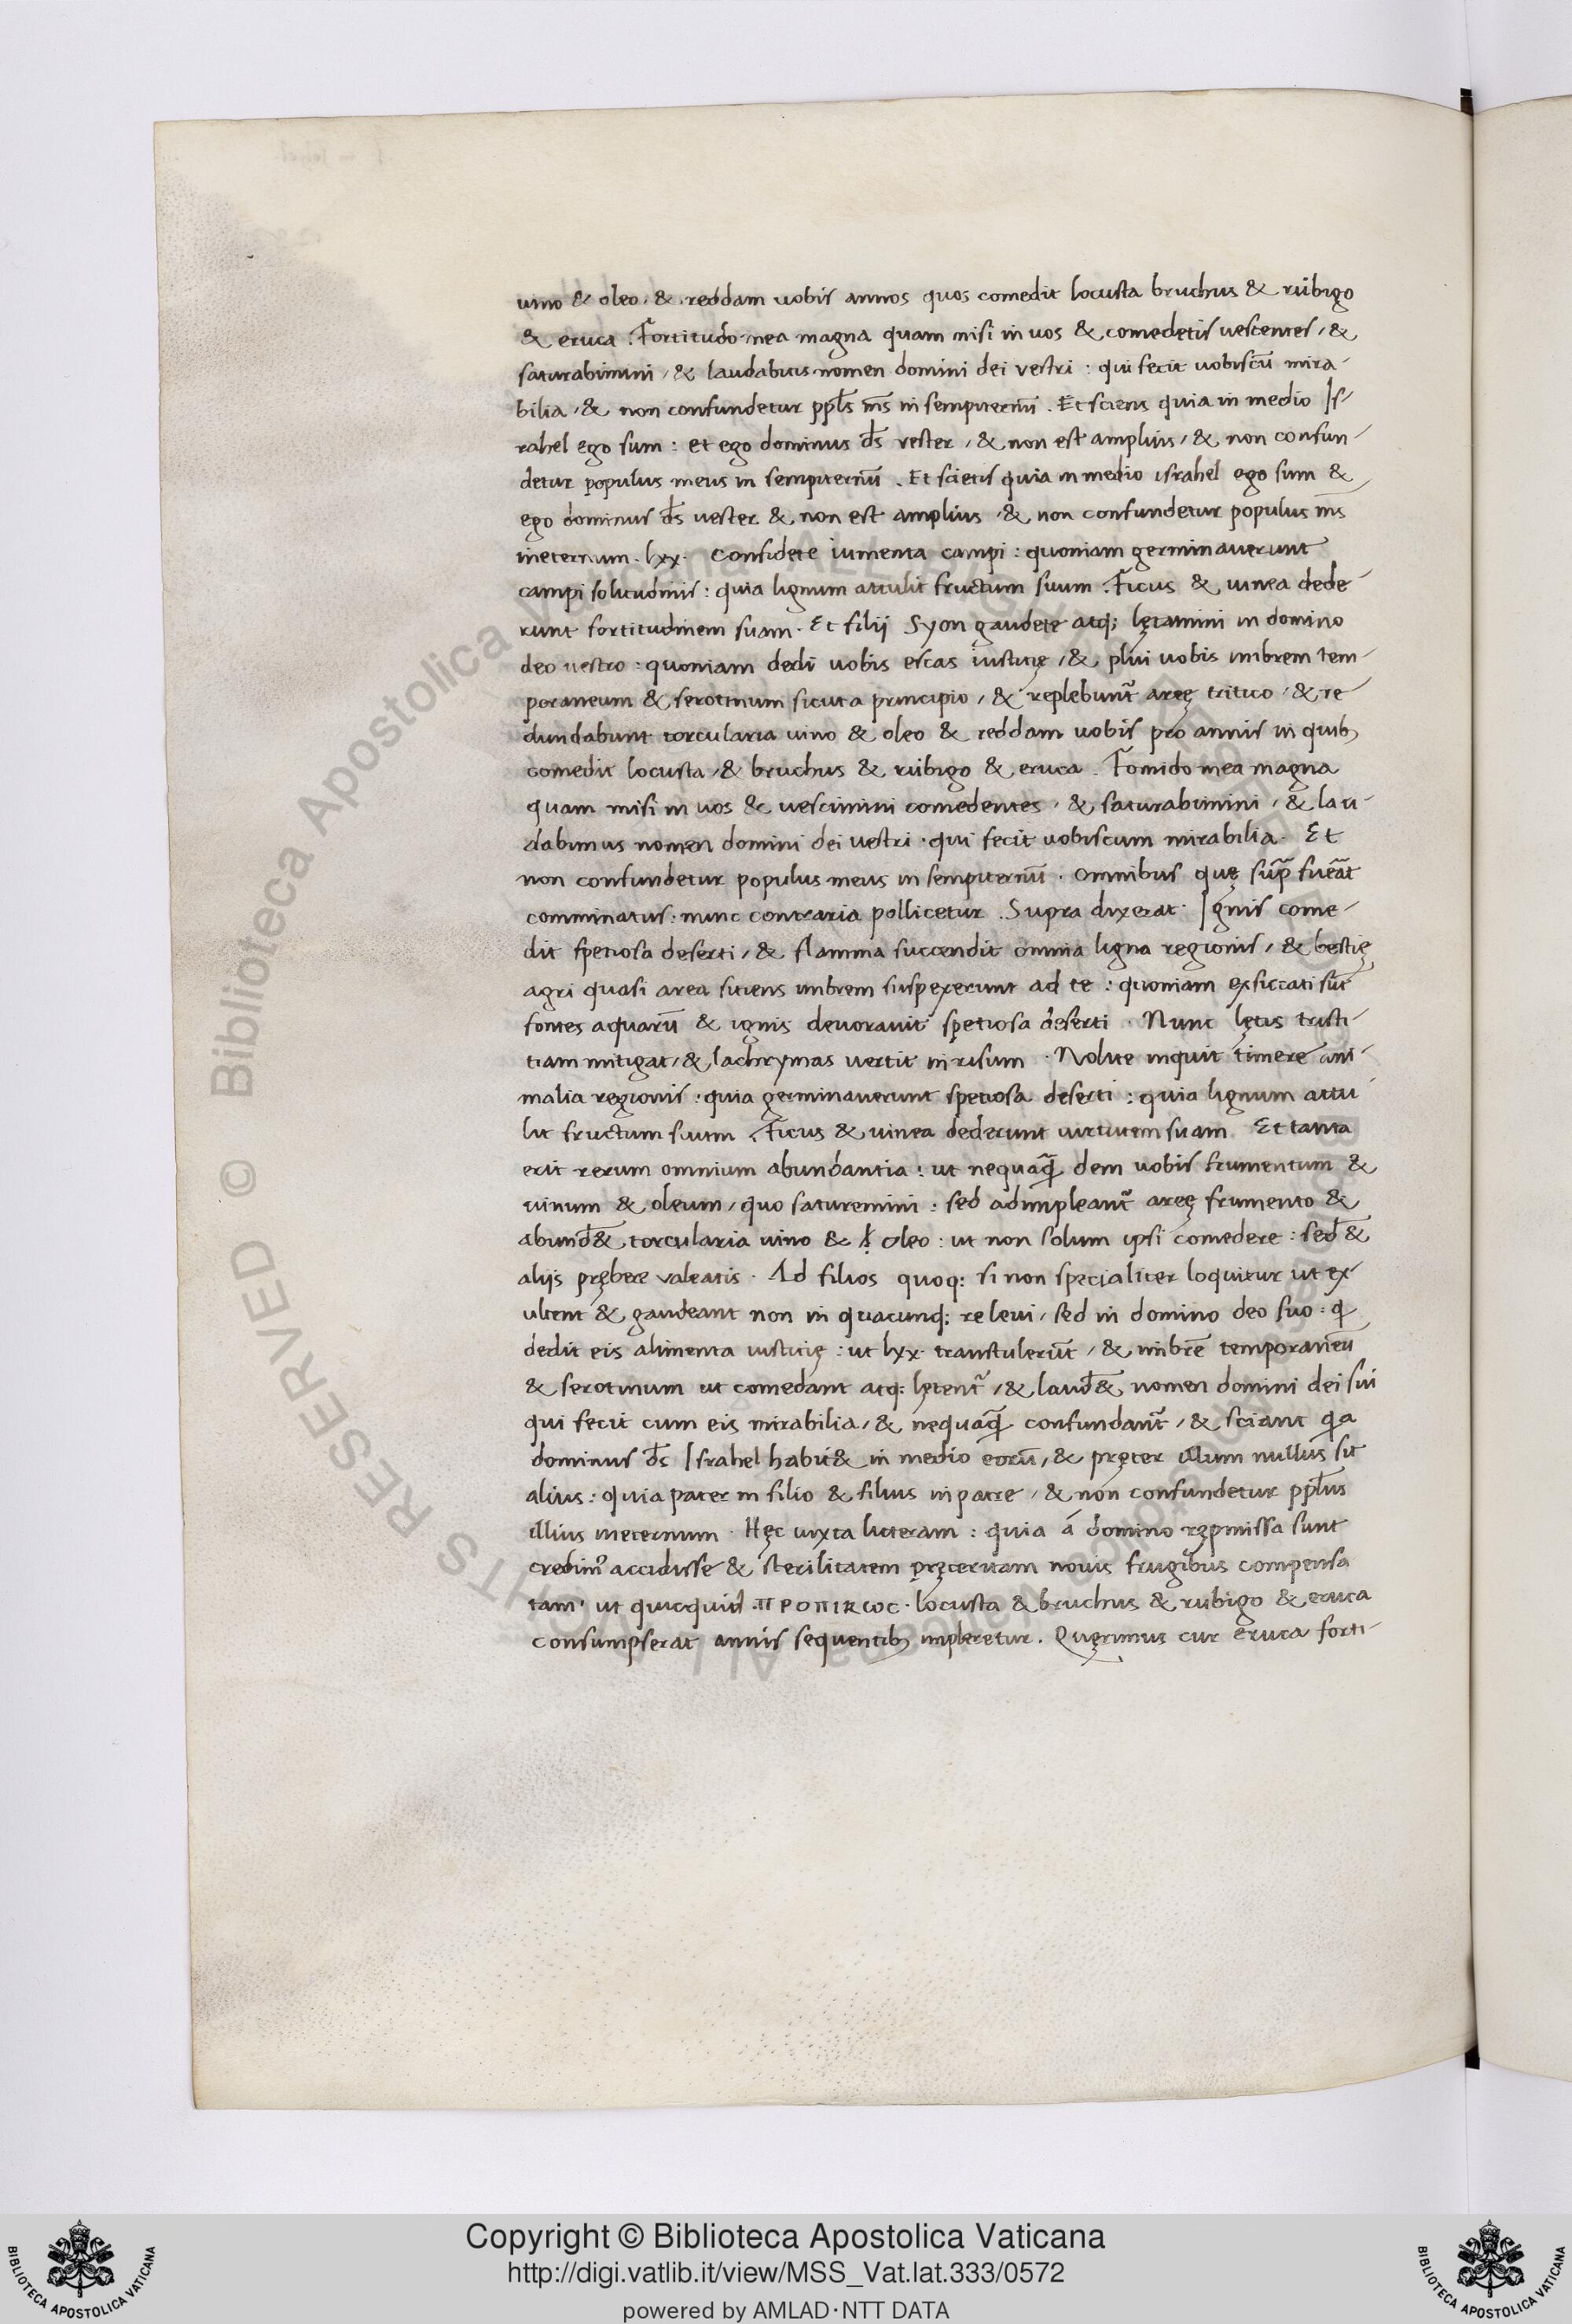 uino & oleo. & reddam uobis annos quos comedit locusta bruchus & rubigo
& eruca. Fortitudo mea magna quam misi in uos & comedetis uescentes / &
saturabimini / & laudabitis nomen domini dei vestri : qui fecit uobiscū mira-
bilia / & non confundetur ppl̄s m̄s in sempiternū. Et sciens quia in medio Is-
rahel ego sum : et ego dominus d̄s vester / & non est amplius / & non confun-
detur populus meus in sempiternū. Et scietis quia in medio israhel ego sum &
ego dominus d̄s uester & non est amplius / & non confundetur populus m̄s
ineternum. lxx. Confidete iumenta campi : quoniam germinauerunt
campi solitudinis : quia lignum attulit fructum suum. Ficus & uinea dede-
runt fortitudinem suam. Et filij Syon gaudete atq; lętamini in domino
deo uestro : quoniam dedi uobis escas iusticię / & plui uobis imbrem tem-
poraneum & serotinum sicut a principio / & replebunt̄ areę tritico / & re-
dundabunt torcularia uino & oleo & reddam uobis pro annis in quib;
comedit locusta / & bruchus & rubigo & eruca. Fomido mea magna
quam misi in uos & uescimini comedentes / & saturabimini / & lau-
dabimus nomen domini dei uestri. qui fecit uobiscum mirabilia. Et
non confundetur populus meus in sempiternū. Omnibus quę sup̄ fueāt
comminatus : nunc contraria pollicetur. Supra dixerat. Ignis come-
dit spetiosa deserti / & flamma succendit omnia ligna regionis / & bestię
agri quasi area sitiens imbrem suspexerunt ad te : quoniam exsiccati sūt
fontes aquarū & ignis deuorauit spetiosa deserti. Nunc lętis tristi-
tiam mitigat / & lachrymas vertit in risum. Nolite inquit timere ani-
malia regionis : quia germinauerunt spetiosa deserti : quia lignum attu-
lit fructum suum. Ficus & uinea dederunt uirtutem suam. Et tanta
erit rerum omnium abundantia : ut nequaq̄ dem uobis frumentum &
uinum & oleum / quo saturemini : sed adimpleant̄ areę frumento &
abund̄& torcularia uino & oleo : ut non solum ipsi comedere : sed &
alijs prębere valeatis. Ad filios quoq; si non specialiter loquitur ut ex-
ultent & gaudeant non in quacunq; re leui / sed in domino deo suo : q
dedit eis alimenta iusticię : ut lxx. transtulerūt / & imbrē temporaneū
& serotinum ut comedant atq; lętent̄ / & laud̄& nomen domini dei sui
qui fecit cum eis mirabilia / & nequaq̄ confundant̄ / & sciant qa
dominus d̄s Israhel habit& in medio eorū / & pręter illum nullus sit
alius : quia pater in filio & filius in patre / & non confundetur ppl̄us
illius ineternum. Hęc iuxta litteram : quia á domino rępmissa sunt
credim9 accidisse & sterilitatem pręteritam nouis frugibus compensa
tam. ut quicquid ΠΡΟΠΙΚωC. locusta & bruchus & rubigo & eruca
consumpserat annis sequentib; impleretur. Quęrimus cur eruca forti-
Copyright © Biblioteca Apostolica Vaticana
http://digi.vatlib.it/view/MSS_Vat.lat.333/0572
powered by AMLAD·NTT DATA
BIBLIOTECA APOSTOLICA VATICANA
BIBLIOTECA APOSTOLICA VATICANA